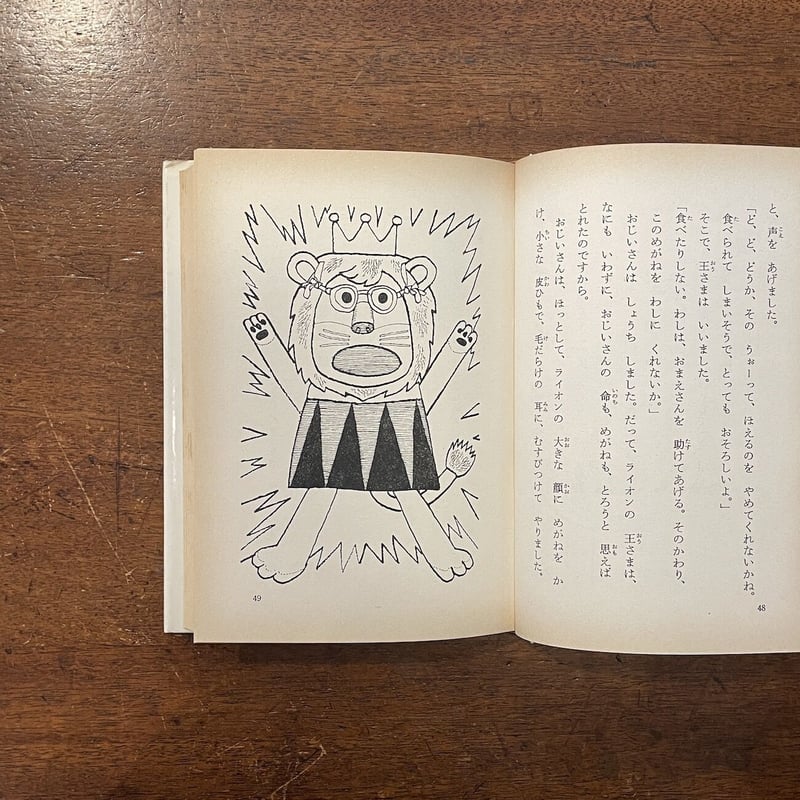 と、声を　あげました。
「ど、ど、どうか、その　うぉーって、ほえるのを　やめてくれないかね。
食べられて　しまいそうで、とっても　おそろしいよ。」
そこで、王さまは　いいました。
「食べたりしない。わしは、おまえさんを　助けてあげる。そのかわり、
このめがねを　わしに　くれないか。」
おじいさんは　しょうち　しました。だって、ライオンの　王さまは、
なにも　いわずに、おじいさんの　命も、めがねも、とろうと　思えば
とれたのですから。
おじいさんは、ほっとして、ライオンの　大きな　顔に　めがねを　か
け、小さな　皮ひもで、毛だらけの　耳に、むすびつけて　やりました。
48
49